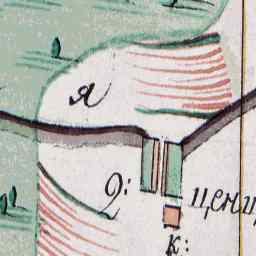 я
9:
цени
к: